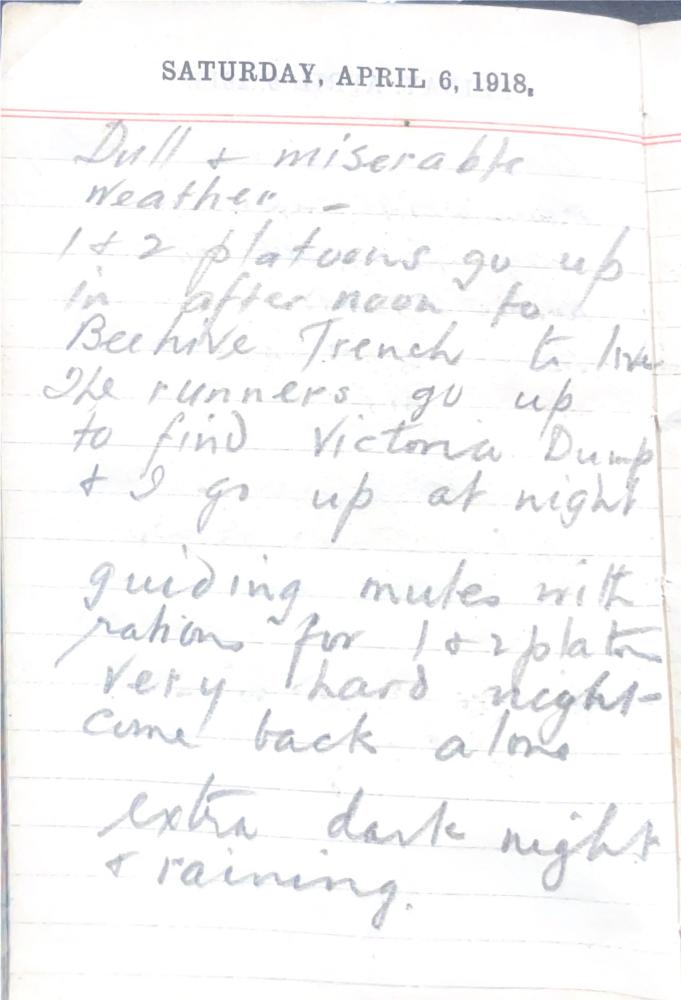 SATURDAY, APRIL 6, 1918.
Dull & miserable
weather –
1 & 2 platoons go up
in after noon to
Beehive Trench to live
The runners go up
to find Victoria Dump
& I go up at night
guiding mules with
rations for 1 & 2 platon
very hard night –
come back alone
extra dark night
& raining.